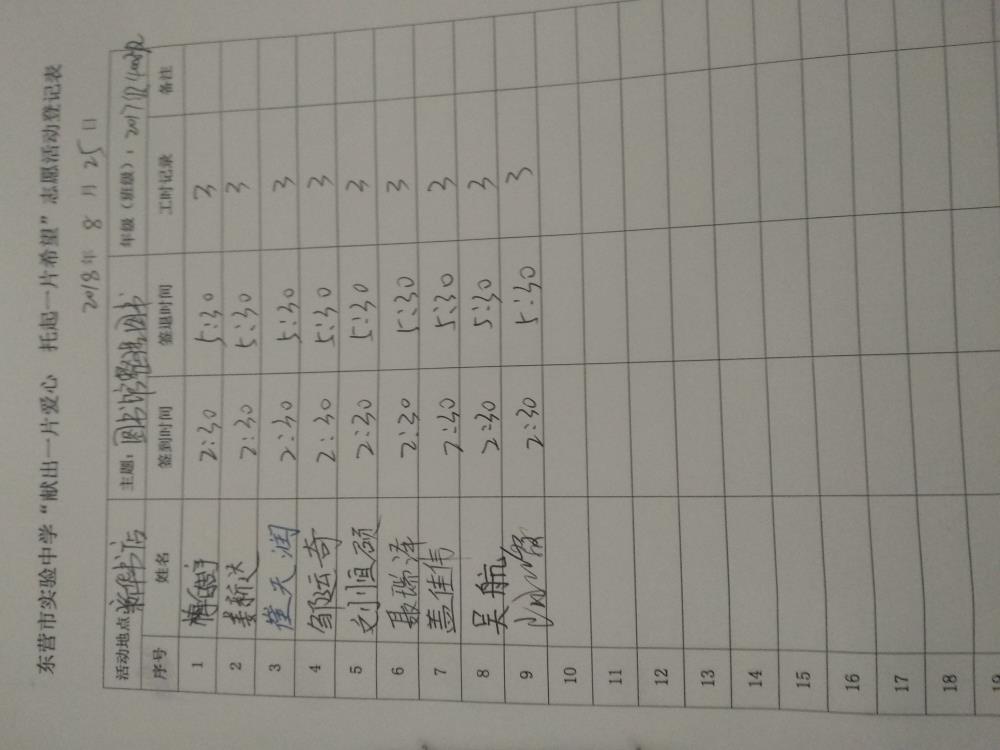 东营市实验中学“献出一片爱心 托起一片希望”志愿活动登记表
2018年 8 月 25 日
活动地点:新华书店 主题:图书馆整理图书 年级(班级):2017级
序号 姓名 签到时间 签退时间 工时记录 备注
1 2:30 5:30 3
2 姜新达 2:30 5:30 3
3 董天润 2:30 5:30 3
4 邹运奇 2:30 5:30 3
5 刘恒硕 2:30 5:30 3
6 聂瑞泽 2:30 5:30 3
7 盖佳伟 2:30 5:30 3
8 吴航 2:30 5:30 3
9 2:30 5:30 3
10
11
12
13
14
15
16
17
18
19